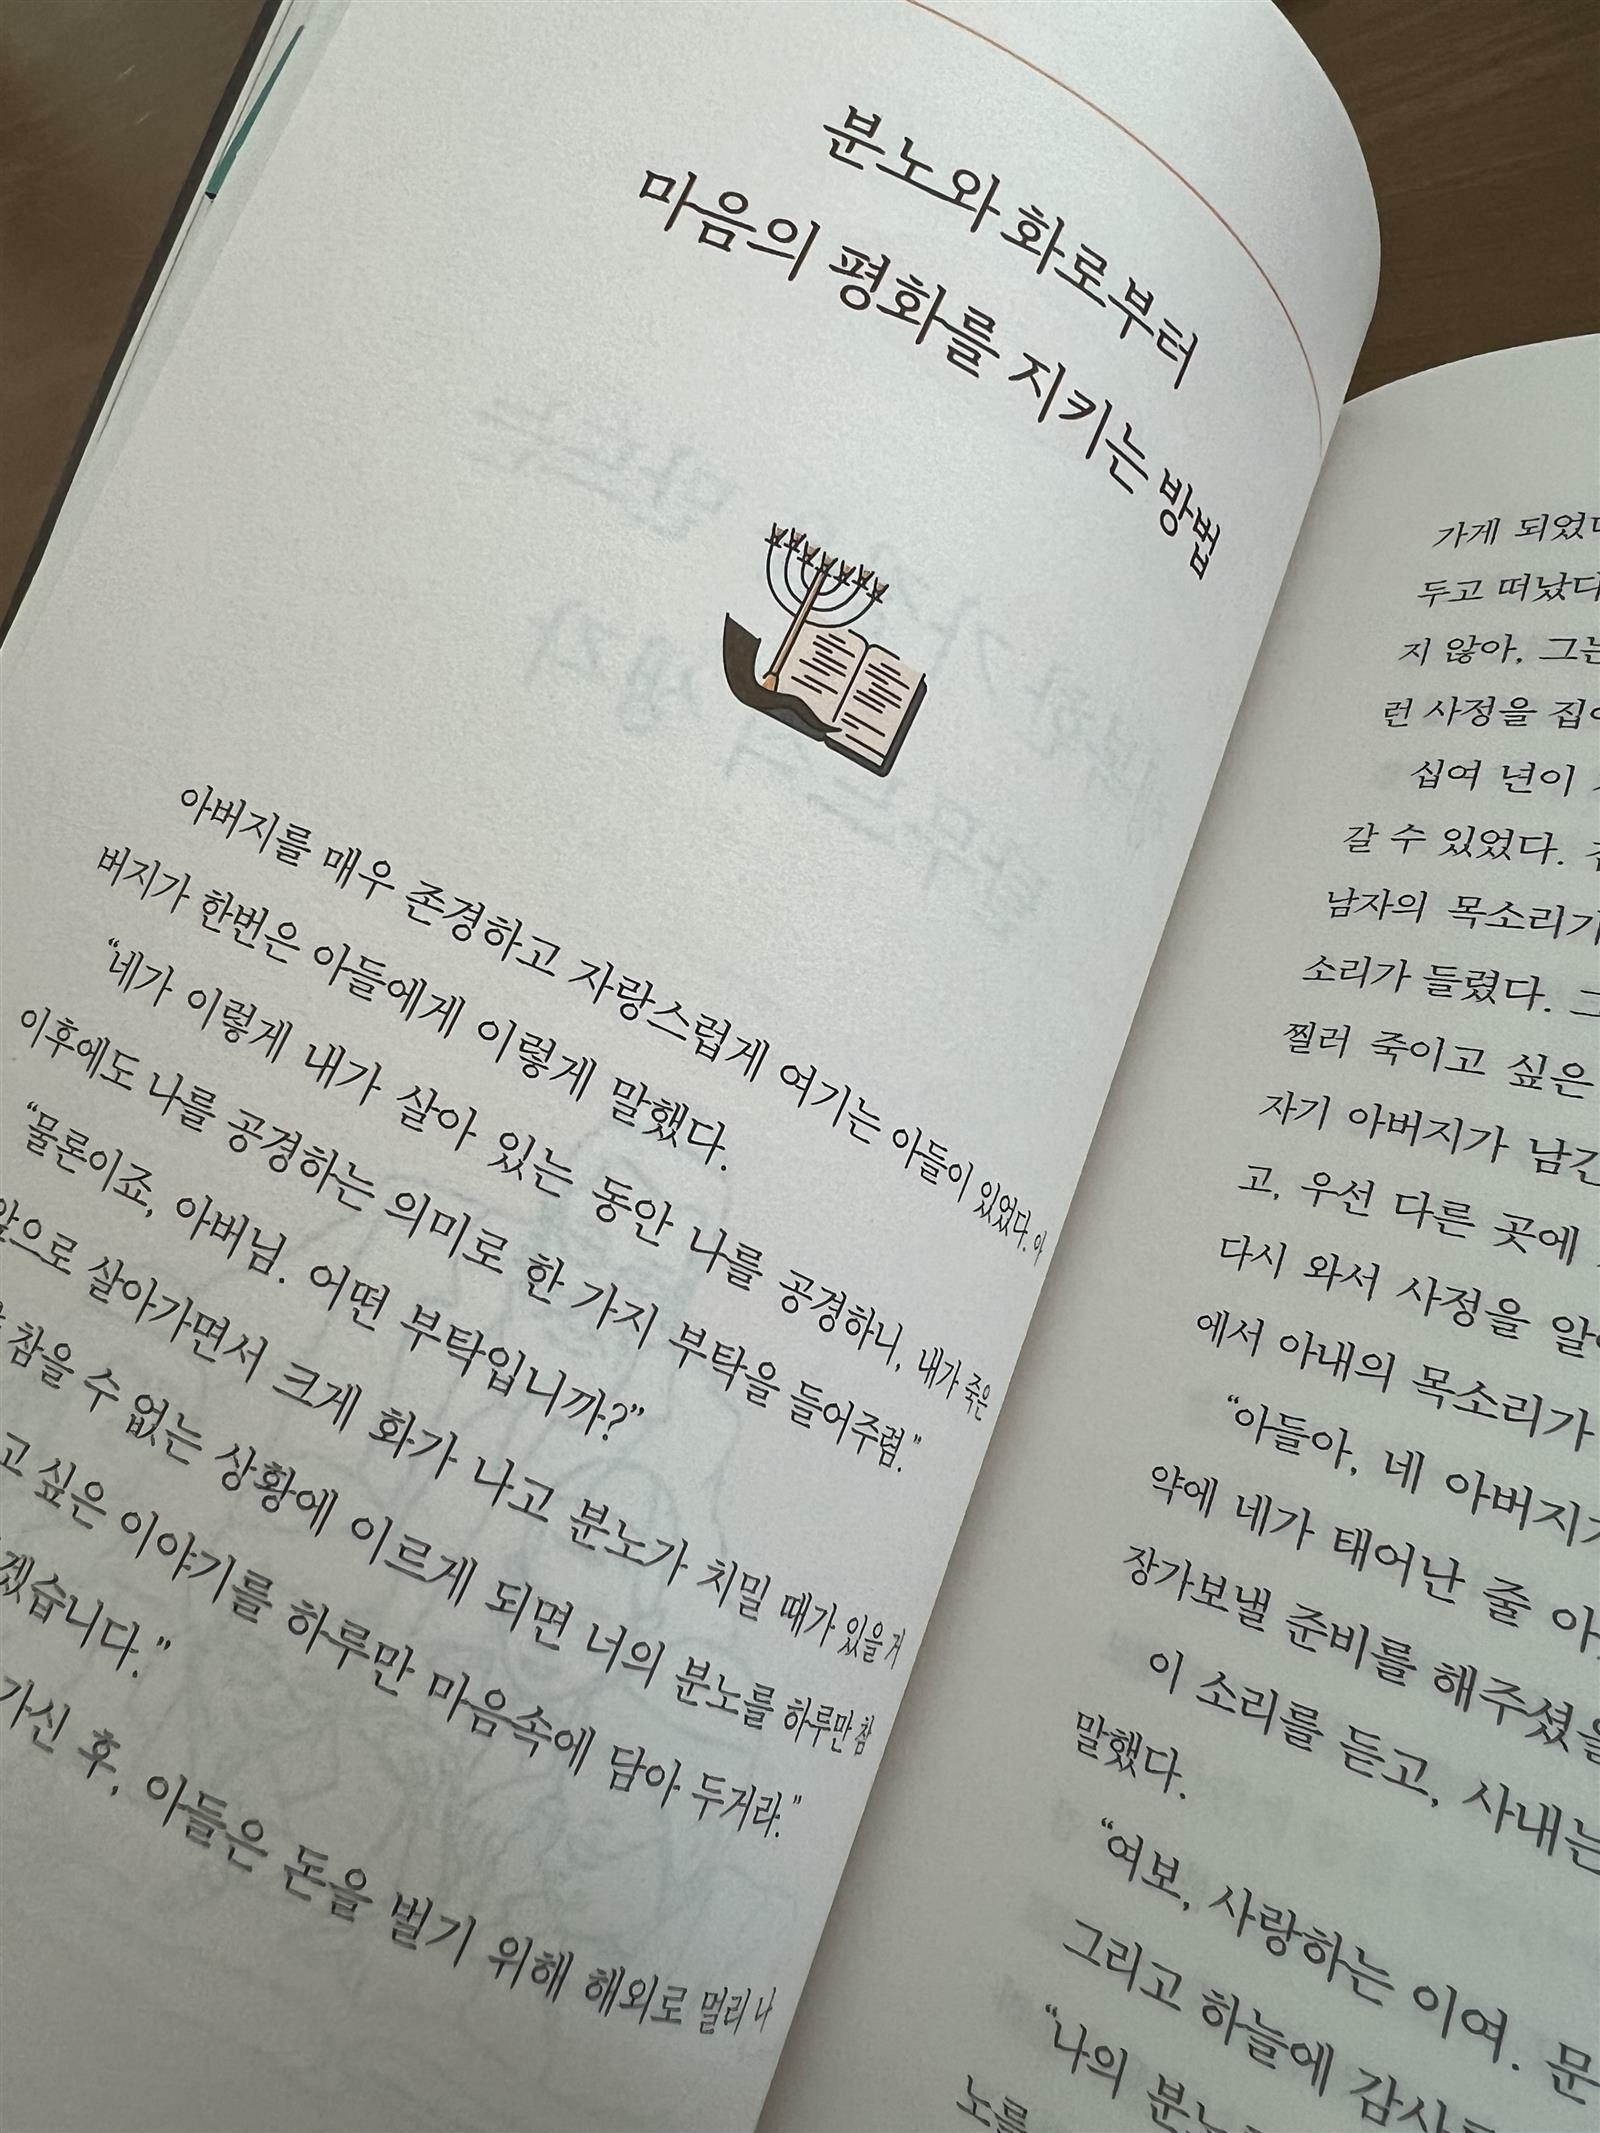 분노와 화로부터
마음의 평화를 지키는 방법
아버지를 매우 존경하고 자랑스럽게 여기는 아들이 있었다. 아
버지가 한번은 아들에게 이렇게 말했다.
“네가 이렇게 내가 살아 있는 동안 나를 공경하니, 내가 죽은
이후에도 나를 공경하는 의미로 한 가지 부탁을 들어주렴.”
“물론이죠, 아버님. 어떤 부탁입니까?”
앞으로 살아가면서 크게 화가 나고 분노가 치밀 때가 있을 거
참을 수 없는 상황에 이르게 되면 너의 분노를 하루만 참
고 싶은 이야기를 하루만 마음속에 담아 두거라.”
겠습니다.”
가신 후, 아들은 돈을 벌기 위해 해외로 멀리 나
가게 되었다
두고 떠났다
지 않아, 그는
런 사정을 집
십여 년이
갈 수 있었다.
남자의 목소리가
소리가 들렸다. 그
찔러 죽이고 싶은
자기 아버지가 남긴
고, 우선 다른 곳에
다시 와서 사정을 알
에서 아내의 목소리가
“아들아, 네 아버지가
약에 네가 태어난 줄 아
장가보낼 준비를 해주셨을
이 소리를 듣고, 사내는
말했다.
“여보, 사랑하는 이여. 문
그리고 하늘에 감사
“나의 분노
노를